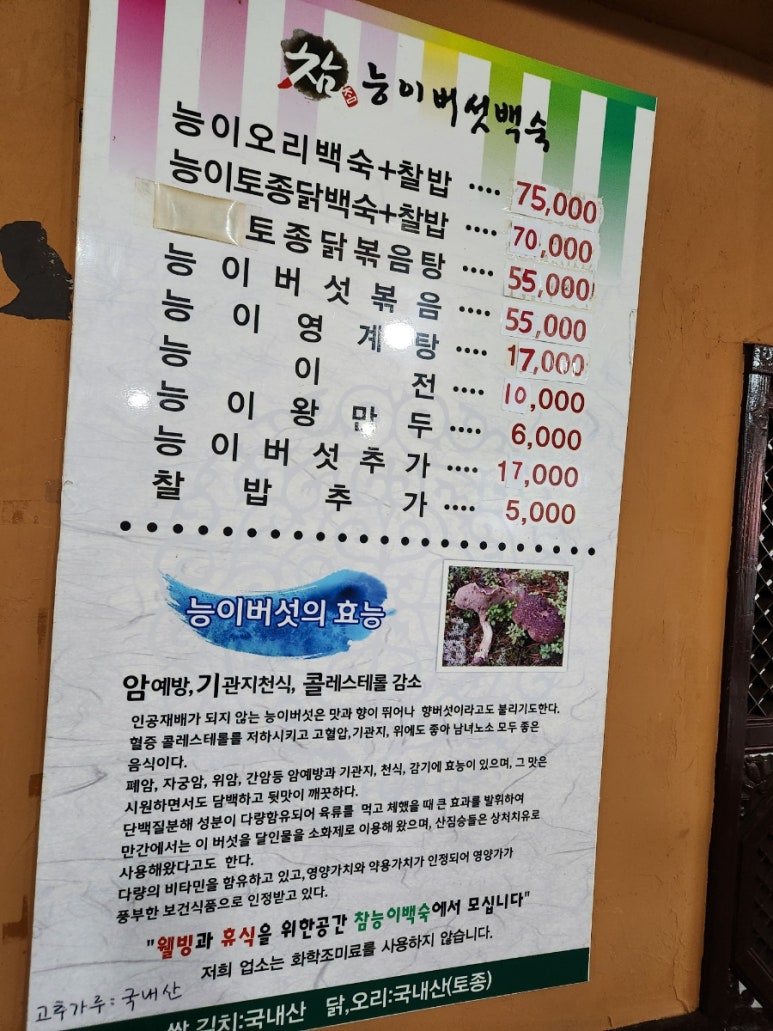 참 능이버섯백숙
능이오리백숙+찰밥 .... 75,000
능이토종닭백숙+찰밥 .... 70,000
토종닭볶음탕 .... 55,000
능이버섯볶음 .... 55,000
능이영계탕 .... 17,000
능이전 .... 10,000
능이왕만두 .... 6,000
능이버섯추가 .... 17,000
찰밥추가 .... 5,000
능이버섯의 효능
암예방,기관지천식, 콜레스테롤 감소
인공재배가 되지 않는 능이버섯은 맛과 향이 뛰어나 향버섯이라고도 불리기도한다.
혈증 콜레스테롤를 저하시키고 고혈압,기관지, 위에도 좋아 남녀노소 모두 좋은
음식이다.
폐암, 자궁암, 위암, 간암등 암예방과 기관지, 천식, 감기에 효능이 있으며, 그 맛은
시원하면서도 담백하고 뒷맛이 깨끗하다.
단백질분해 성분이 다량함유되어 육류를 먹고 체했을 때 큰 효과를 발휘하여
만간에서는 이 버섯을 달인물을 소화제로 이용해 왔으며, 산짐승들은 상처치유로
사용해왔다고도 한다.
다량의 비타민을 함유하고 있고,영양가치와 약용가치가 인정되어 영양가가
풍부한 보건식품으로 인정받고 있다.
"웰빙과 휴식을 위한공간 참능이백숙에서 모십니다"
저희 업소는 화학조미료를 사용하지 않습니다.
고추가루 : 국내산
쌀,김치:국내산 닭,오리:국내산(토종)